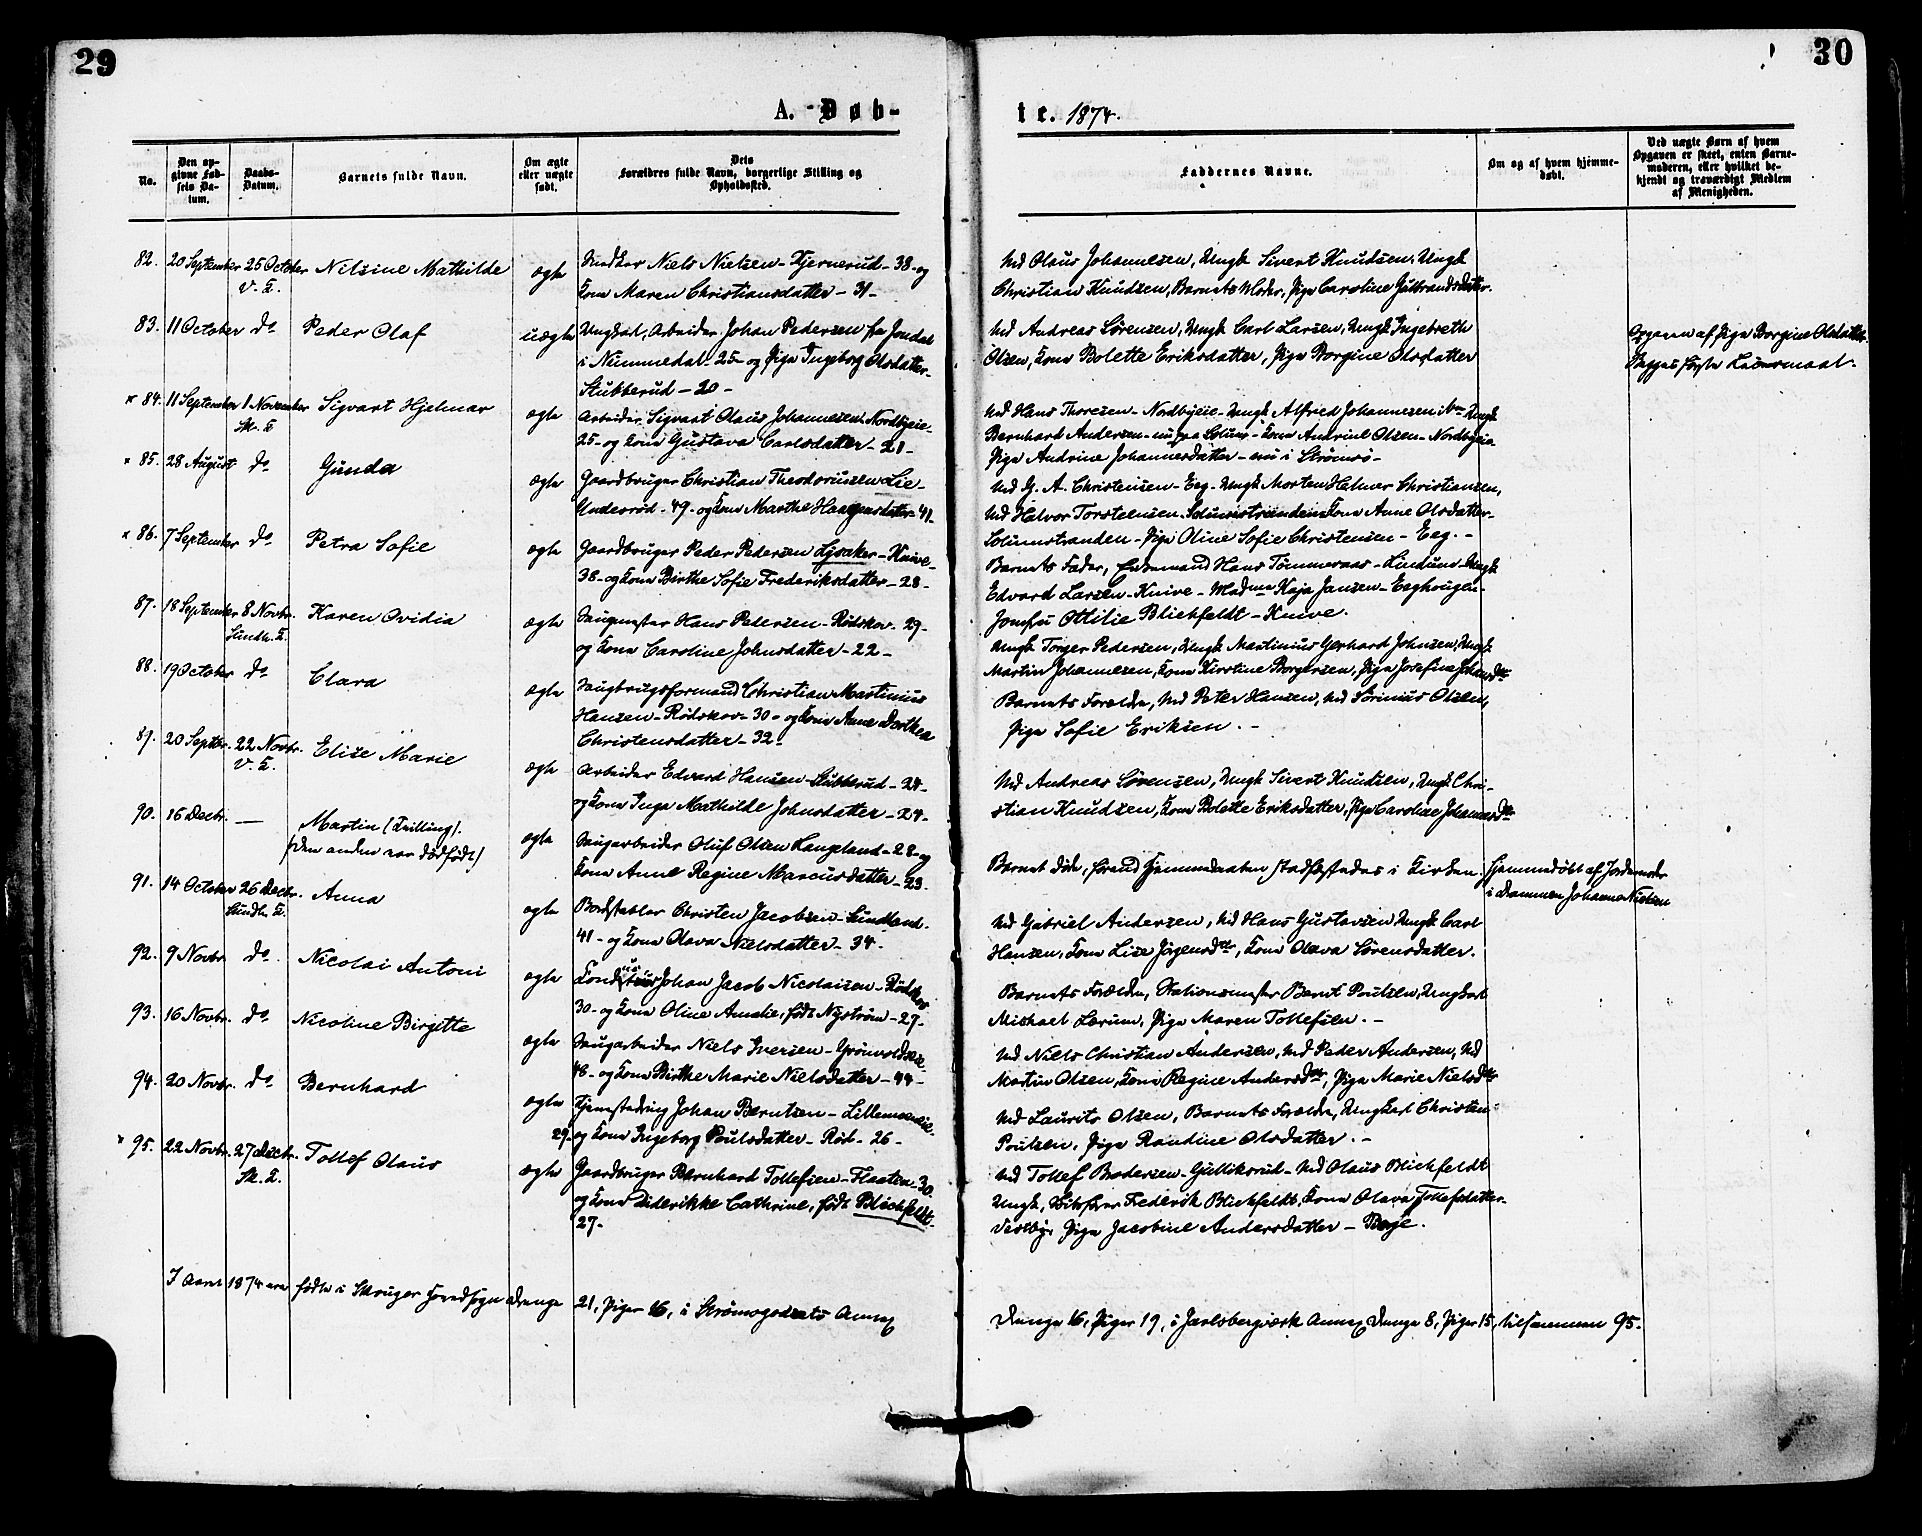 29
30
A. Døb-
te. 1874.
No.
Den op-
givne Fød-
sels Da-
tum.
Daabs-
Datum.
Barnets fulde Navn.
Om ægte
eller uægte
født.
Dets
Forældres fulde Navn, borgerlige Stilling og
Opholdssted.
Faddernes Navne.
Om og af hvem hjemme-
døbt.
Ved uægte Børn af hvem
Opgaven er skeet, enten Barne-
moderen, eller hvilket be-
kjendt og troværdigt Medlem
af Menigheden.
82. 20 September 25 October Nilsine Mathilde ægte
V. K.
Niels Nielsen - Hjernerud - 38 - og
Kone Maren Christiansdatter - 31 -
Md Olaus Johannesen, Ungk Sivert Knudsen, Ungk
Christian Knudsen, Barnets Moder, Pige Caroline Gulbrandsdatter.
83. 11 October do Peder Olaf uægte
Ungkarl, Arbeider Johan Pedersen fra Jondal
i Nummedal - 25 - og Pige Ingeborg Olsdatter -
Stubberud - 20 -
Md Andreas Sørensen, Ungk Carl Larsen, Ungk Ingebreth
Olsen, Kone Bolette Eriksdatter, Pige Borgine Olsdatter
Opgaven af Pige Borgine Olsdatter.
Begges første Leiermaal.
x 84. 11 September 1 November Sigvart Hjelmar ægte
Sk. K
Arbeider Sigvart Olaus Johannesen Nordbyeie -
25 - og Kone Gustava Carlsdatter - 21 -
Md Hans Thoresen - Nordbyeie - Ungk Alfred Johannesen Ungk
Bernhard Andersen - nu paa Solum - Kone Andrine Olsen - Nordbyeie
Pige Andrine Johannesdatter - nu i Strømsø -
x 85. 28 August do Gunda ægte
Gaardbruger Christian Theodoriusen Lie -
Underrød - 49 - og Kone Marthe Haagensdatter - 41 -
Md G. A. Christensen - Eeg - Ungk Morten Helmer Christiansen,
Md Helvor Torstensen Solumstranden Kone Anne Olsdatter -
Solumstranden - Pige Oline Sofie Christensen - Eeg. -
x 86. 7 September do Petra Sofie ægte
Gaardbruger Peder Pedersen Lysaker - Knive -
38 - og Kone Birthe Sofie Frederiksdatter - 28 -
Barnets Fader, Hans Tømmeraas - Lindum - Ungk
Edvard Larsen - Knive - Madme Kaja Jansen - Eeghougen -
Jomfru Ottilie Blichfeldt - Knive.
87. 18 September 8 Novbr. Karen Ovidia ægte
Sundh. K.
Saugmester Hans Pedersen - Rødskov - 29 -
og Kone Caroline Johnsdatter - 22 -
Ungk Torger Pedersen, Ungk Martinius Gerhard Johnsen, Ungk
Martin Johannesen, Kone Kirstine Borgersen, Pige Josefine Johansdtr
88. 19 October do Clara ægte
Saugbrugsformand Christian Martinius
Hansen - Rødskov - 30 - og Kone Anne Dorthea
Christensdatter - 32 -
Barnets Forældre, Md Peter Hansen, Md Sørinius Olsen,
Pige Sofie Eriksen. -
89. 20 Septbr. 22 Novbr. Elise Marie ægte
V. K.
Arbeider Edvard Hansen - Stubberud - 24 -
og Kone Inga Mathilde Johnsdatter - 24 -
Md Andreas Sørensen, Ungk Sivert Knudsen, Ungk Chri-
stian Knudsen, Kone Bolette Eriksdatter, Pige Caroline Johannesdtr
90. 16 Decbr. — Martin (Tvilling). ægte
(den anden var dødfødt)
Saugarbeider Oluf Olsen Langeland - 28 - og
Kone Anne Regine Marcusdatter - 23 -
Barnet døde, førend Hjemmedaaben stadfæstedes i Kirken.
Hjemmedøbt af Jordemoder
i Drammen Johanne Nielsen
91. 14 October 26 Decbr. Anna ægte
Sundh. K.
Bordstabler Christen Jacobsen - Sundland -
41 - og Kone Olava Nielsdatter - 34 -
Md Gabriel Andersen, Md Hans Gustavsen Ungk Carl
Hansen, Kone Lise Jørgensdtr, Kone Olava Sørensdatter.
92. 9 Novbr. do Nicolai Antoni ægte
Johan Jacob Nicolaisen - Rødskov
30 - og Kone Oline Amalie, født Nystrøm - 27 -
Barnets Forældre, Stationsmester Bernt Poulsen, Ungkarl
Michael Lærum, Pige Maren Tollefsen. -
93. 16 Novbr. do Nicoline Birgitte ægte
Saugarbeider Niels Iversen - Grønvoldseie -
48 - og Kone Birthe Marie Nielsdatter - 44 -
Md Niels Christian Andersen, Md Peder Andersen, Md
Martin Olsen, Kone Regine Andersdtr, Pige Marie Nielsdtr
94. 20 Novbr. do Bernhard ægte
Johan Berntsen - Lillemoeneie -
29 - og Kone Ingeborg Poulsdatter - Rød - 26 -
Md Laurits Olsen, Barnets Forældre, Ungkarl Christian
Poulsen, Pige Randine Olsdatter. -
x 95. 22 Novbr. 27 Decbr. Tollef Olaus ægte
Sk. K.
Gaardbruger Bernhard Tollefsen - Flaaten - 30 -
og Kone Diderikke Cathrine, født Blichfeldt -
27 -
Md Tollef Brødersen - Gulliksrud - Md Olaus Blichfeldt
Ungk, Frederik Blichfeldt, Kone Olava Tollefsdatter -
Vestby, Pige Jacobine Andersdatter - Berje.
I Aaret 1874 ere fødte i Skouger Hovedsogn Drenge 21, Piger 16, i Strømsgodsets Annex
Drenge 16, Piger 19, i Jarlsbergværk Annex Drenge 8, Piger 15, tilsammen 95.